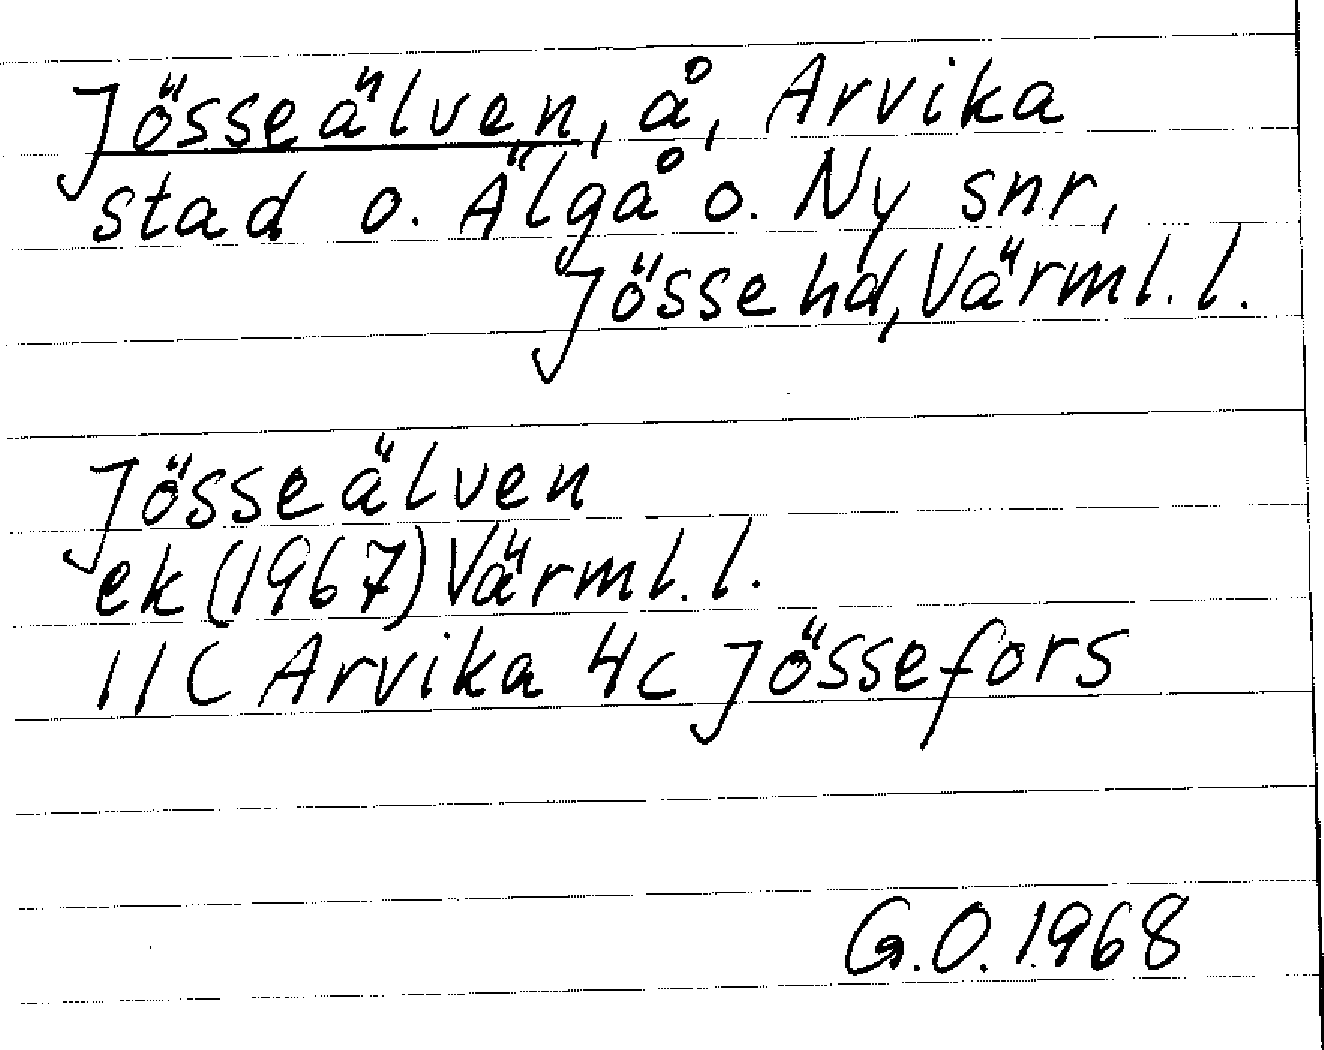 Jösseälven, å, Arvika
stad o. Älgå o. Ny snr,
Jösse hd, Värml. l.
Jösseälven
ek (1967) Värml. l.
11C Arvika 4c Jössefors
G.O. 1968